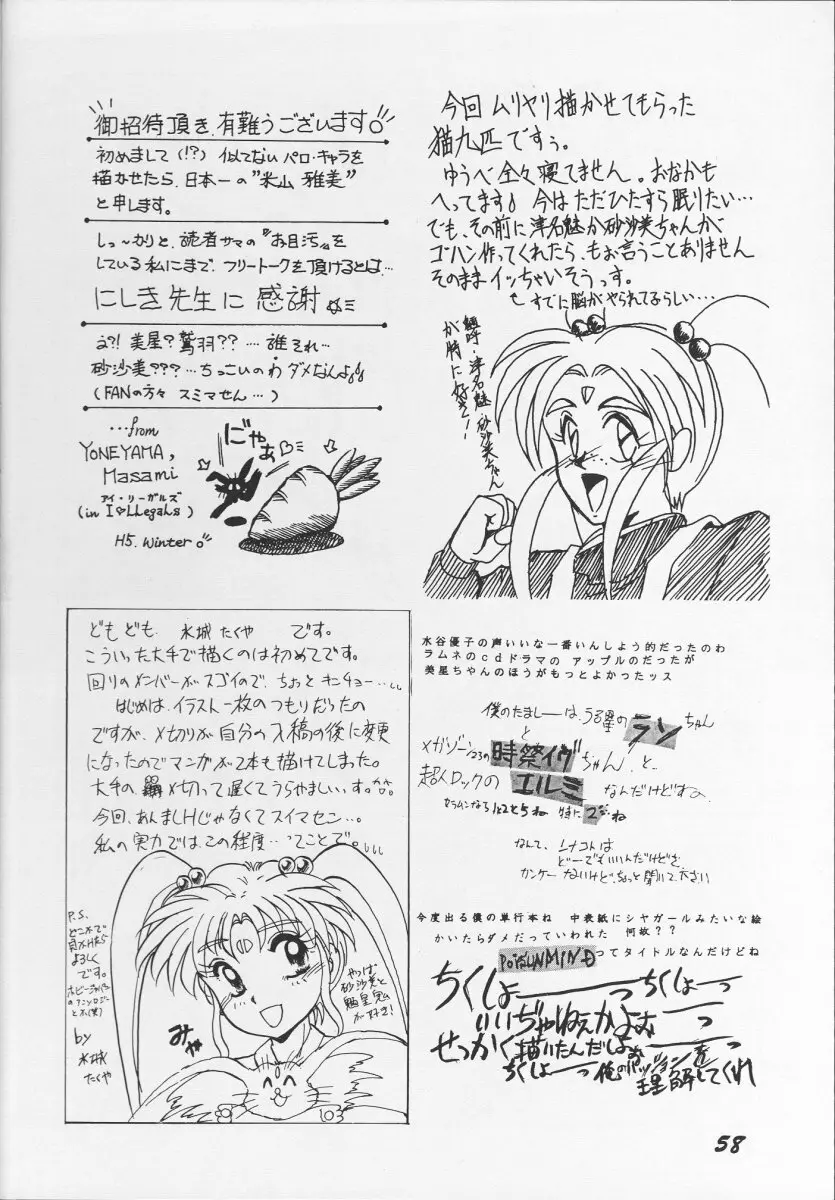 御招待頂き、有難うございます。
初めまして(!?) 似てないパロ・キャラを
描かせたら、日本一の"米山 雅美"
と申します。
しっ〜かりと、読者サマの『お目汚』を
している私にまで、フリートークを頂けるとは…
にしき先生に感謝
え?! 美星? 鷲羽?? …. 誰それ…
砂沙美???… ちっこいのわ ダメなんよ
(FANの方々 スミマせん…)
…from
YONEYAMA,
Masami
アイ・リーガルズ
(in I♡LLegaLs)
H5. Winter。
にゃあ
今回 ムリヤリ描かせてもらった
猫九匹ですぅ。
ゆうべ全々寝てません。おなかも
へってます 今はただひたすら眠りたい…
でも、その前に津名魅か砂沙美ちゃんが
ゴハン作ってくれたら、もお言うことありません
そのままイッちゃいそうっす。
すでに脳がやられてるらしい…
魎呼・津名魅 砂沙美ちゃん
が特に好き!!
どもども、水城 たくや です。
こういった大手で描くのは初めてです。
回りのメンバーがスゴイので、ちょっとキンチョー…
はじめは、イラスト一枚のつもりだったの
ですが、〆切りが自分の入稿の後に変更
になったのでマンガが2本も描けてしまった。
大手の〆切って遅くてうらやましいっす。
今回、あんましHじゃなくてスイマセン…。
私の実力では、この程度…ってことで。
P.S.
よろしく
です。
by
水城
たくや
やっぱ
砂沙美と
魎皇鬼
が好き!
みゃ
水谷優子の声いいな一番いんしよう的だったのわ
ラムネのcdドラマの アップルのだったが
美星ちゃんのほうがもっとよかったッス
僕のたましーは、うる星のランちゃん
と
メガゾーン23の時祭イヴちゃん、と
超人ロックのエルミなんだけどすよ
セラムンなら1と2と5ね 特に2ね
なんて、
どーでもいいんだけどさ
カンケーないけど、ちょっと聞いて下さい
今度出る僕の単行本ね 中表紙にシヤガールみたいな絵
かいたらダメだっていわれた 何故??
POISUNMINDってタイトルなんだけどね
ちくしょーーっちくしょーっ
いいぢゃねぇかよぉーっ
せっかく描いたんだしょぉーー
ちくしょーっ俺のパッションを
理解してくれ
58